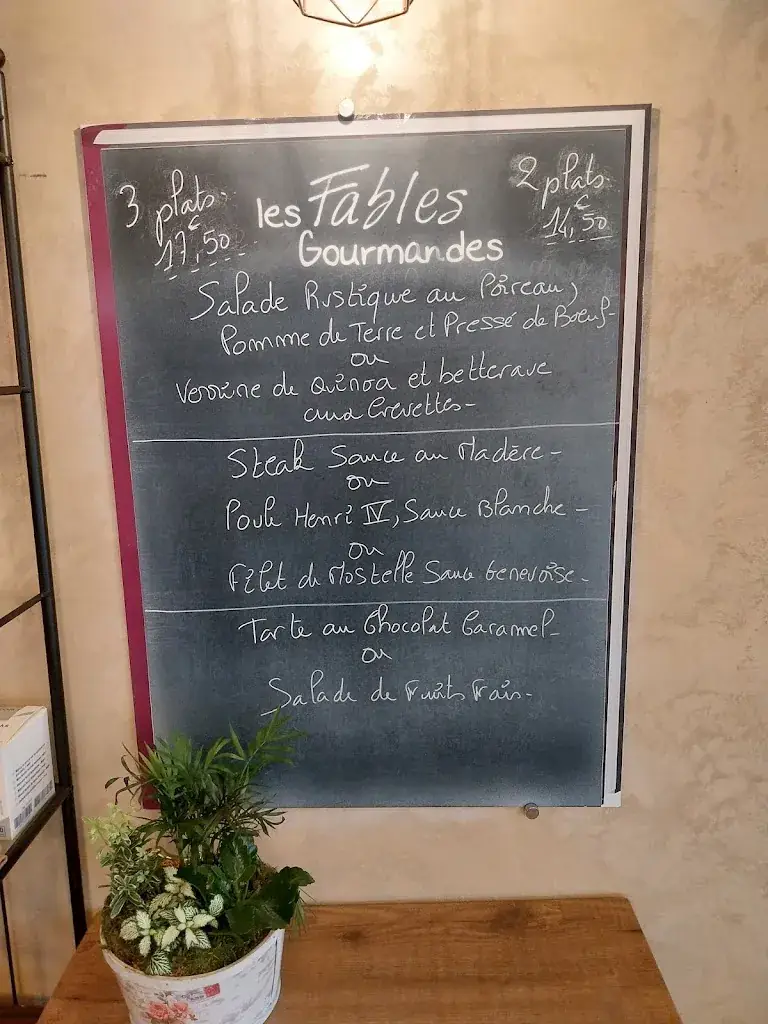 3 plats
17,50 €
les Fables
Gourmandes
2 plats
14,50 €
Salade Rustique au Poireau,
Pomme de Terre et Pressé de Boeuf-
ou
Verrine de Quinoa et betterave
aux Crevettes-
Steak Sauce au Madère-
ou
Poule Henri IV, Sauce Blanche-
ou
Filet de Mostelle Sauce Genevoise-
Tarte au Chocolat Caramel-
ou
Salade de Fruits Frais-